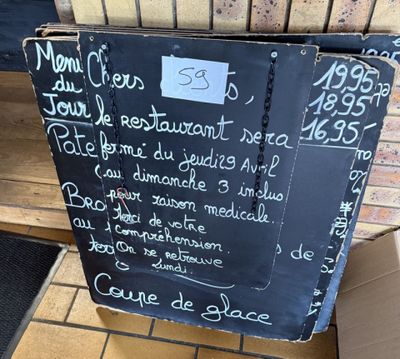 Menu
du
Jour
19,95
18,95
16,95
Chers
59
s,
le restaurant sera
fermé du jeudi 29 Avril
au dimanche 3 inclus
pour raison medicale.
Merci de votre
compréhension.
On se retrouve
Lundi.
Pate
Bro
au
de
Coupe de glace